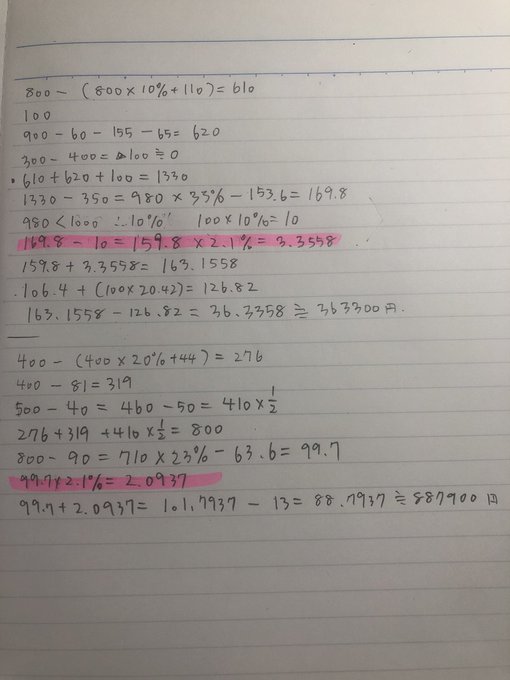 800 - (800 × 10% + 110) = 610
100
900 - 60 - 155 - 65 = 620
300 - 400 = △100 ≒ 0
・610 + 620 + 100 = 1330
1330 - 350 = 980 × 33% - 153.6 = 169.8
980 < 1000 ∴ 10% 100 × 10% = 10
169.8 - 10 = 159.8 × 2.1% = 3.3558
159.8 + 3.3558 = 163.1558
106.4 + (100 × 20.42) = 126.82
163.1558 - 126.82 = 36.3358 ≒ 363300円.
400 - (400 × 20% + 44) = 276
400 - 81 = 319
500 - 40 = 460 - 50 = 410 × 1/2
276 + 319 + 410 × 1/2 = 800
800 - 90 = 710 × 23% - 63.6 = 99.7
99.7 × 2.1% = 2.0937
99.7 + 2.0937 = 101.7937 - 13 = 88.7937 ≒ 887900円